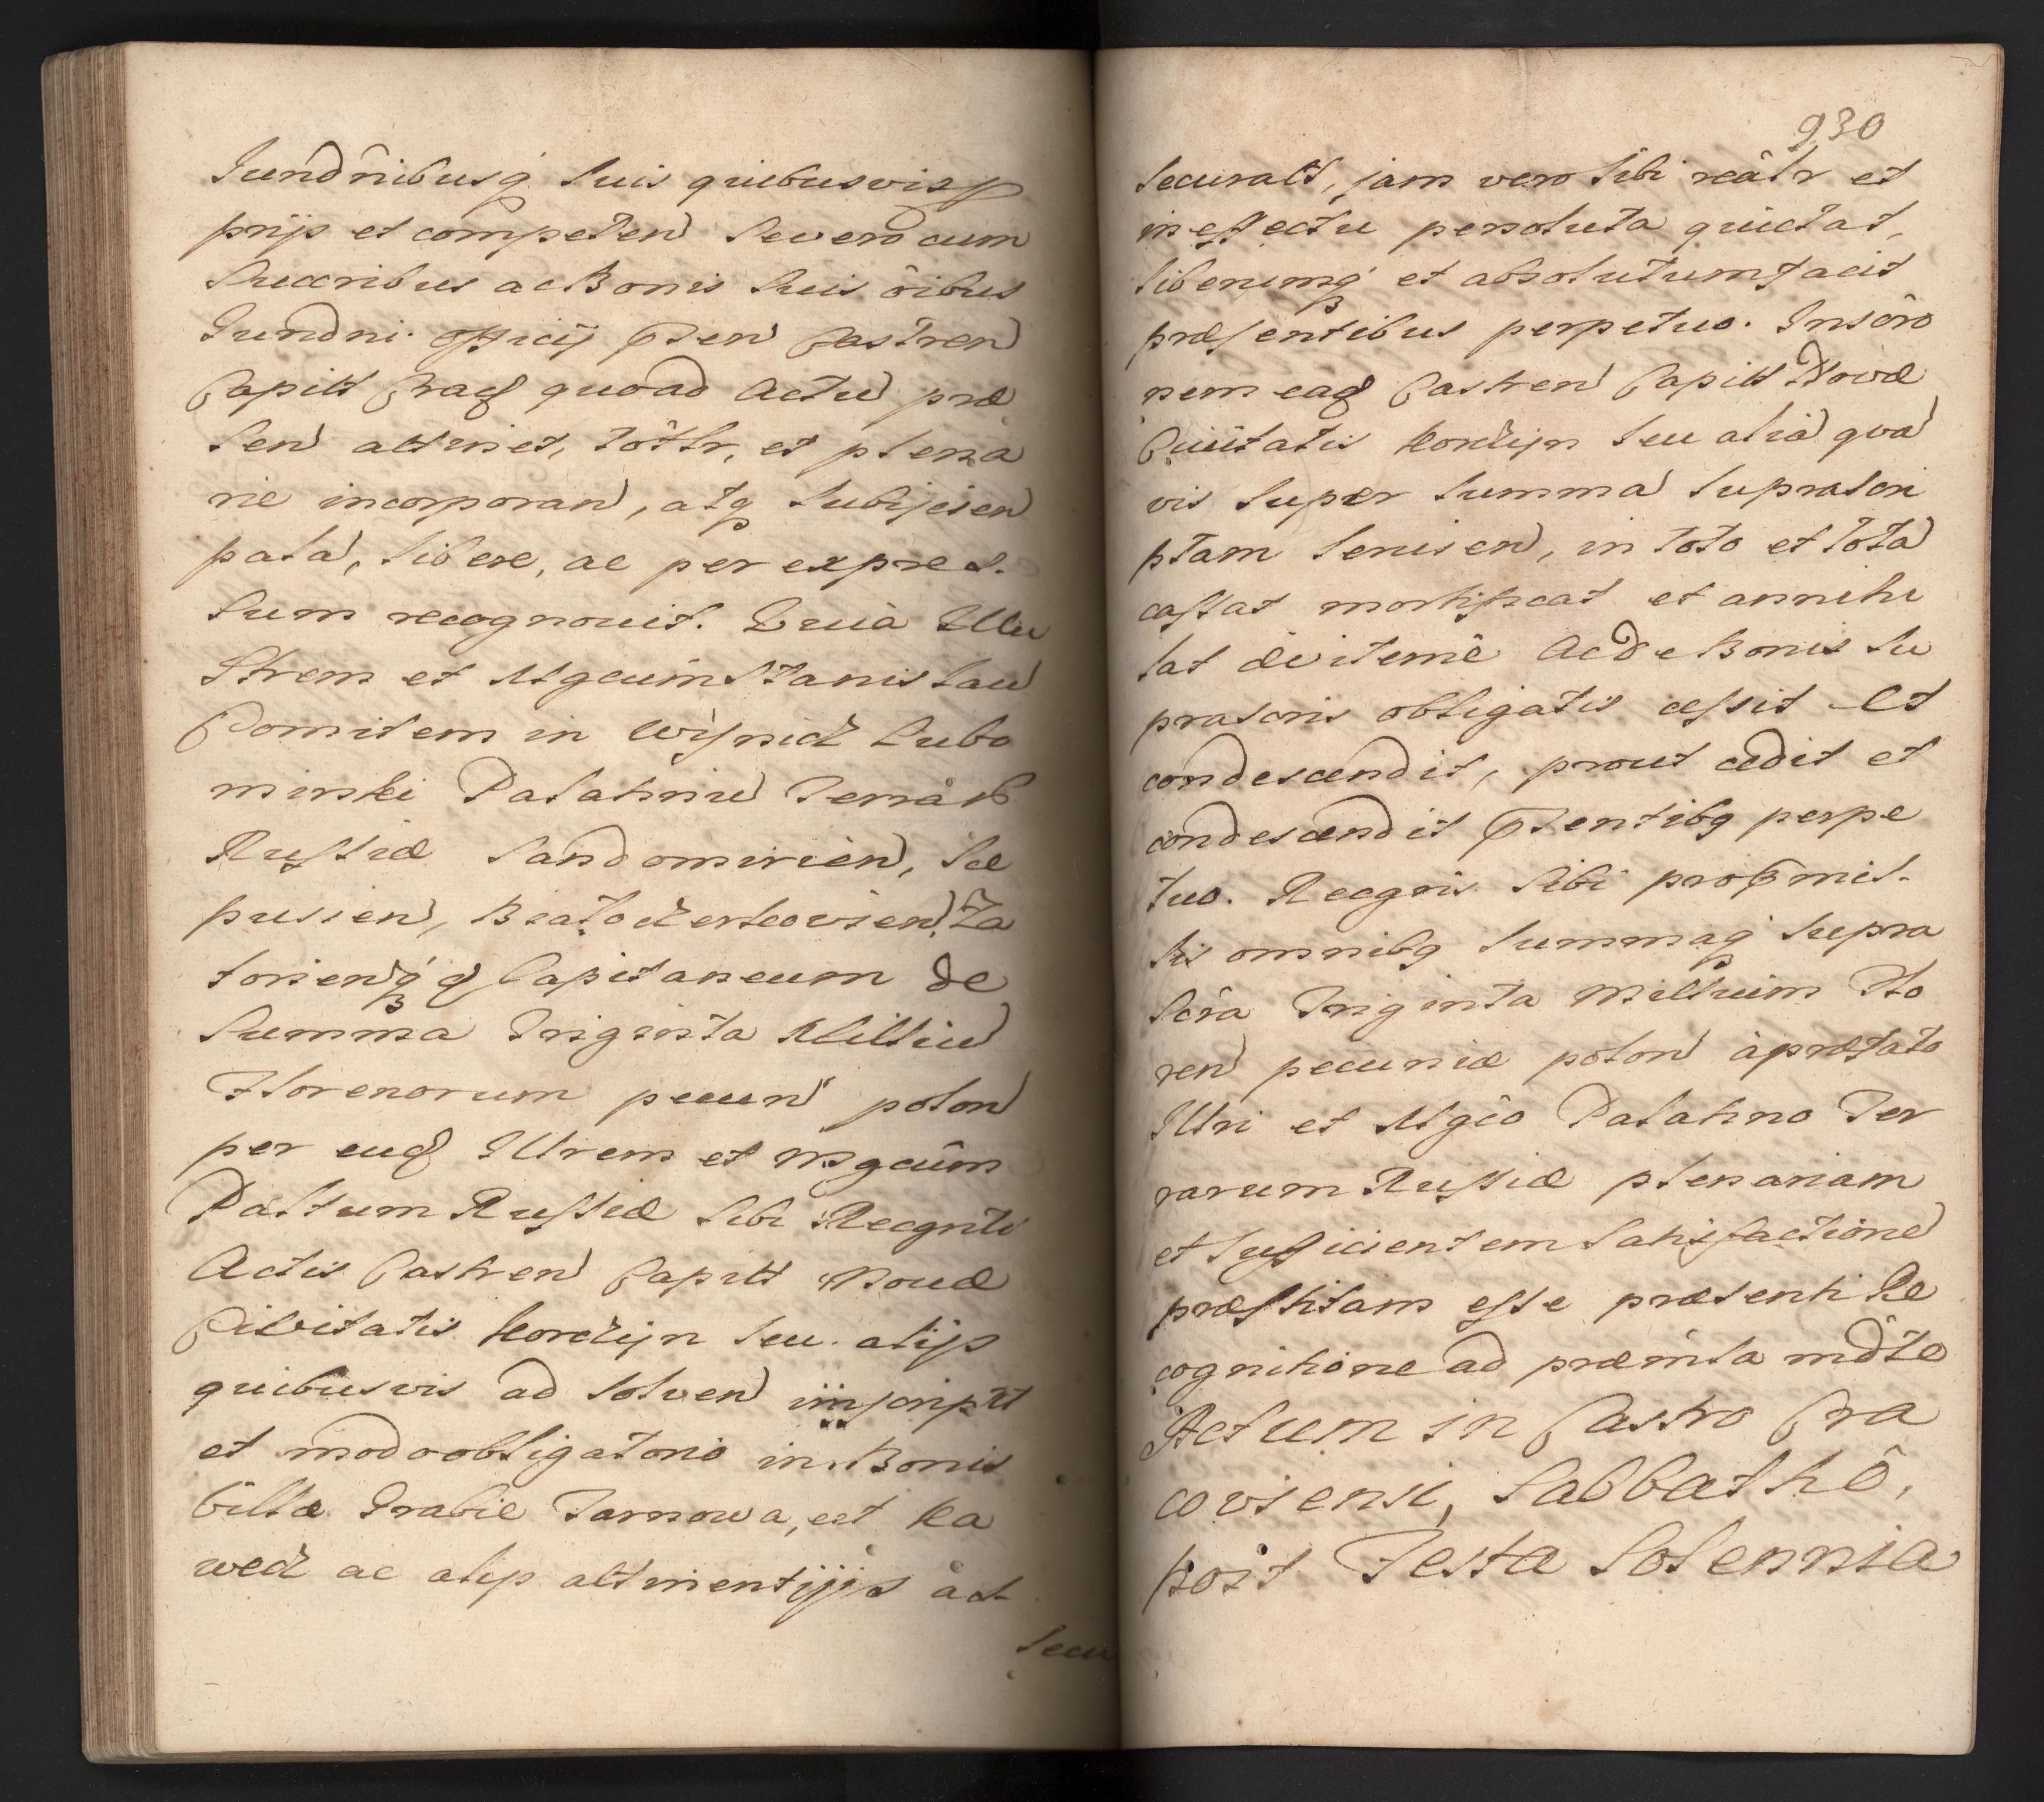 Iurdnibusq suis quibusvis p
prijs et competen Se vero cum
Succribus ac Bonis suis oibus
Iurdni officij pten Castren
Capitt Crac quoad Actu præ
sen attinet, tottr, et plena
rie incorporan, atq Subijcien
pala, libere, ac per expres.
sum recognouit. Quia Illu
Strem et Mgcum Stanislau
Comitem in Wisnicz Lubo
mirski Palatinu Terrar
Russiæ Sandomirien, Sce
pusien, Biatocerkovien, Za
torienq q Capitaneum de
Summa Triginta Milliu
Florenorum pecun polon
per eud Illrem et Mgcum
Palttum Russiæ sibi Recgnti
Actis Castren Capitt Nouæ
Civitatis Korczyn seu alijs
quibusvis ad solven inscriptt
et modo obligatorio in Bonis
Villæ Grabie Tarnowa, et Ka
wecz ac alijs attinentijs ad
Secu
930
securatt, jam vero sibi realr et
in effectu persoluta quietat,
liberumq et absolutum facit
præsentibus perpetuo. Inscro
nem ead Castren Capitt Novæ
Civitatis Korczyn seu alia qua
vis super summa suprascri
ptam servien, in toto et tota
cassat mortificat et annihi
lat æviterne Ac de Bonis su
prascris obligatis cessit et
condescendit, prout cedit et
condescendit ptentibq perpe
tuo. Recgnis sibi pro pmis.
sis omnibq summaq supra
scra Triginta Millium Flo
ren pecuniæ polon à præfato
Illri et Mgco Palatino Ter
rarum Russiæ plenariam
et sufficientem satisfactione
præstitam esse præsenti Re
cognitione ad præmissa mdte
Actum in Castro Cra
coviensi, Sabbathô,
post Festa Solennia